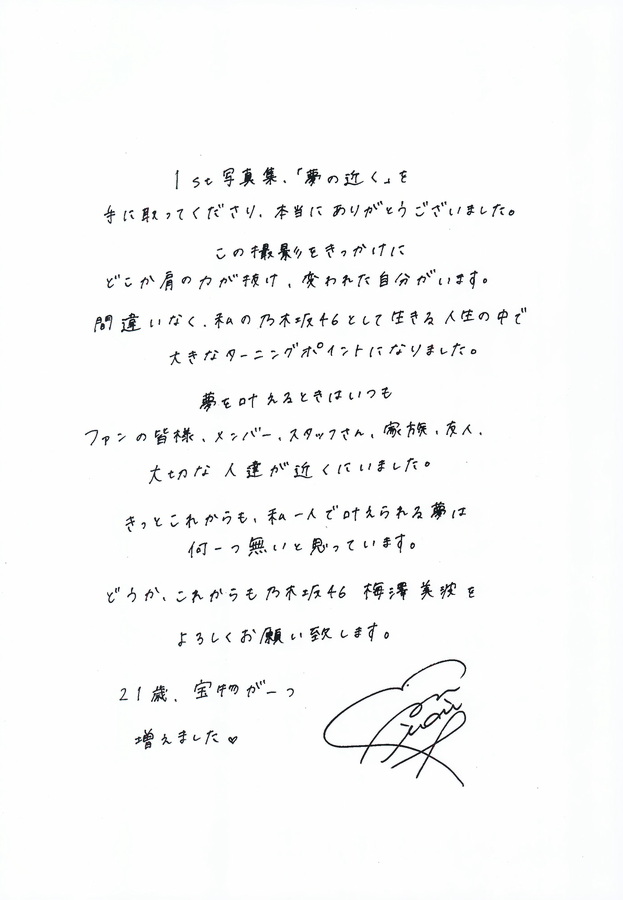 1st写真集、「夢の近く」を
手に取ってくださり、本当にありがとうございました。
この撮影をきっかけに
どこか肩の力が抜け、変われた自分がいます。
間違いなく、私の乃木坂46として生きる人生の中で
大きなターニングポイントになりました。
夢を叶えるときはいつも
ファンの皆様、メンバー、スタッフさん、家族、友人、
大切な人達が近くにいました。
きっとこれからも、私一人で叶えられる夢は
何一つ無いと思っています。
どうか、これからも乃木坂46 梅澤美波を
よろしくお願い致します。
21歳、宝物が一つ
増えました♡